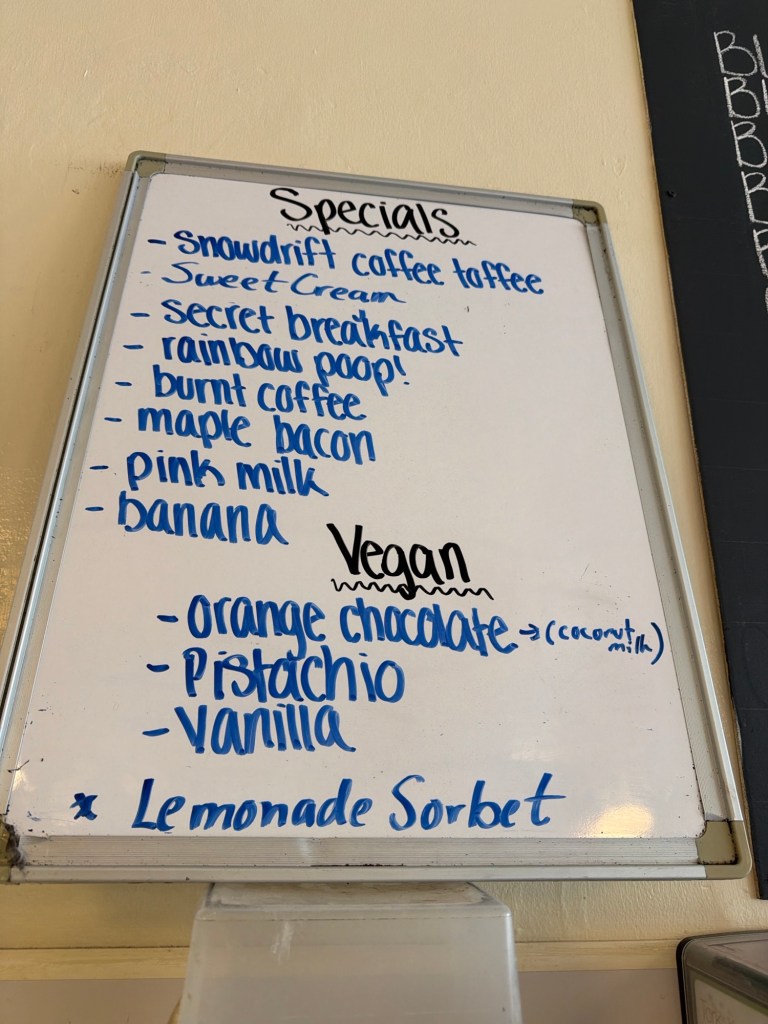 Specials
- snowdrift coffee toffee
- Sweet Cream
- secret breakfast
- rainbow poop!
- burnt coffee
- maple bacon
- pink milk
- banana
Vegan
- orange chocolate → (coconut milk)
- Pistachio
- Vanilla
* Lemonade Sorbet